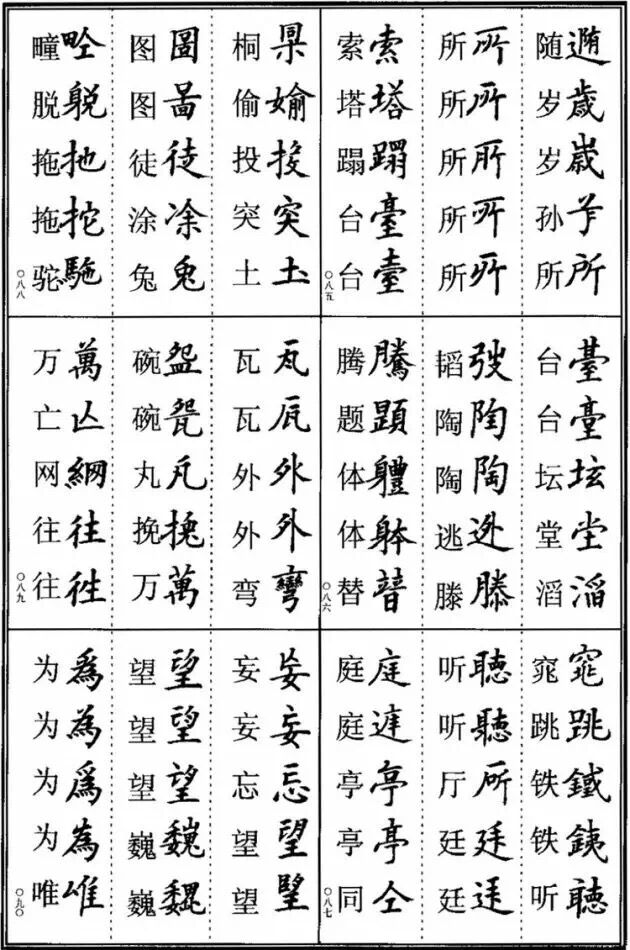 随
岁歳
岁嵗
孙
所所
所所
所所
所所
所所
所所
索索
塔塔
蹋蹋
台臺
台臺
〇八五
台臺
台臺
坛坛
堂坣
滔滔
韬弢
陶陶
陶陶
逃迯
滕滕
腾騰
题題
体軆
体躰
替朁
〇八六
窕窕
跳跳
铁鐵
铁銕
听聴
听聽
听聽
厅所
廷廷
廷
庭庭
庭
亭亭
亭亭
同仝
〇八七
桐
偷媮
投投
突突
土圡
图圖
图啚
徒徒
涂凃
兔兔
疃
脱躭
拖扡
拖拕
驼駞
〇八八
瓦瓦
瓦
外外
外外
弯彎
碗盌
碗
丸
挽
万萬
万萬
亡亾
网網
往往
往徃
〇八九
妄妄
妄妄
忘忘
望望
望朢
望望
望望
望望
巍巍
巍巍
为為
为為
为爲
为為
唯唯
〇九〇